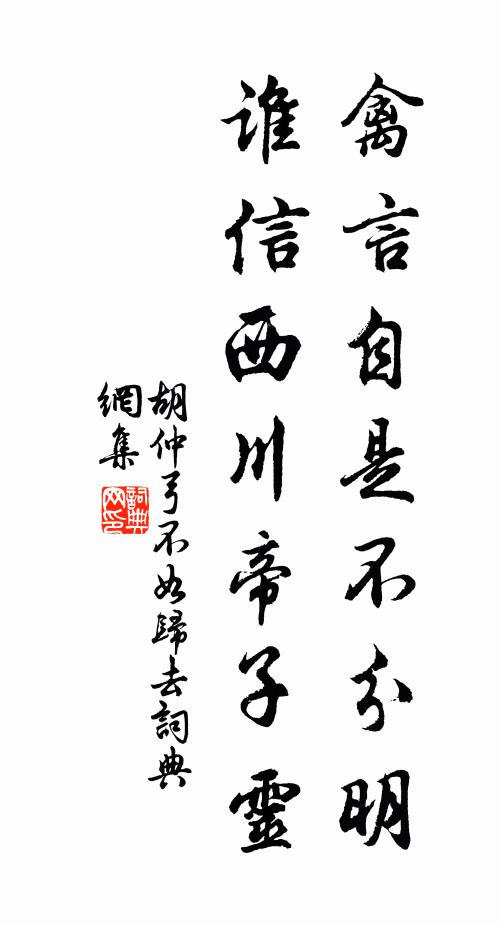 禽言自是不分明
谁信西川帝子靈
胡仲弓不如歸去詞典
網集
詞典网印